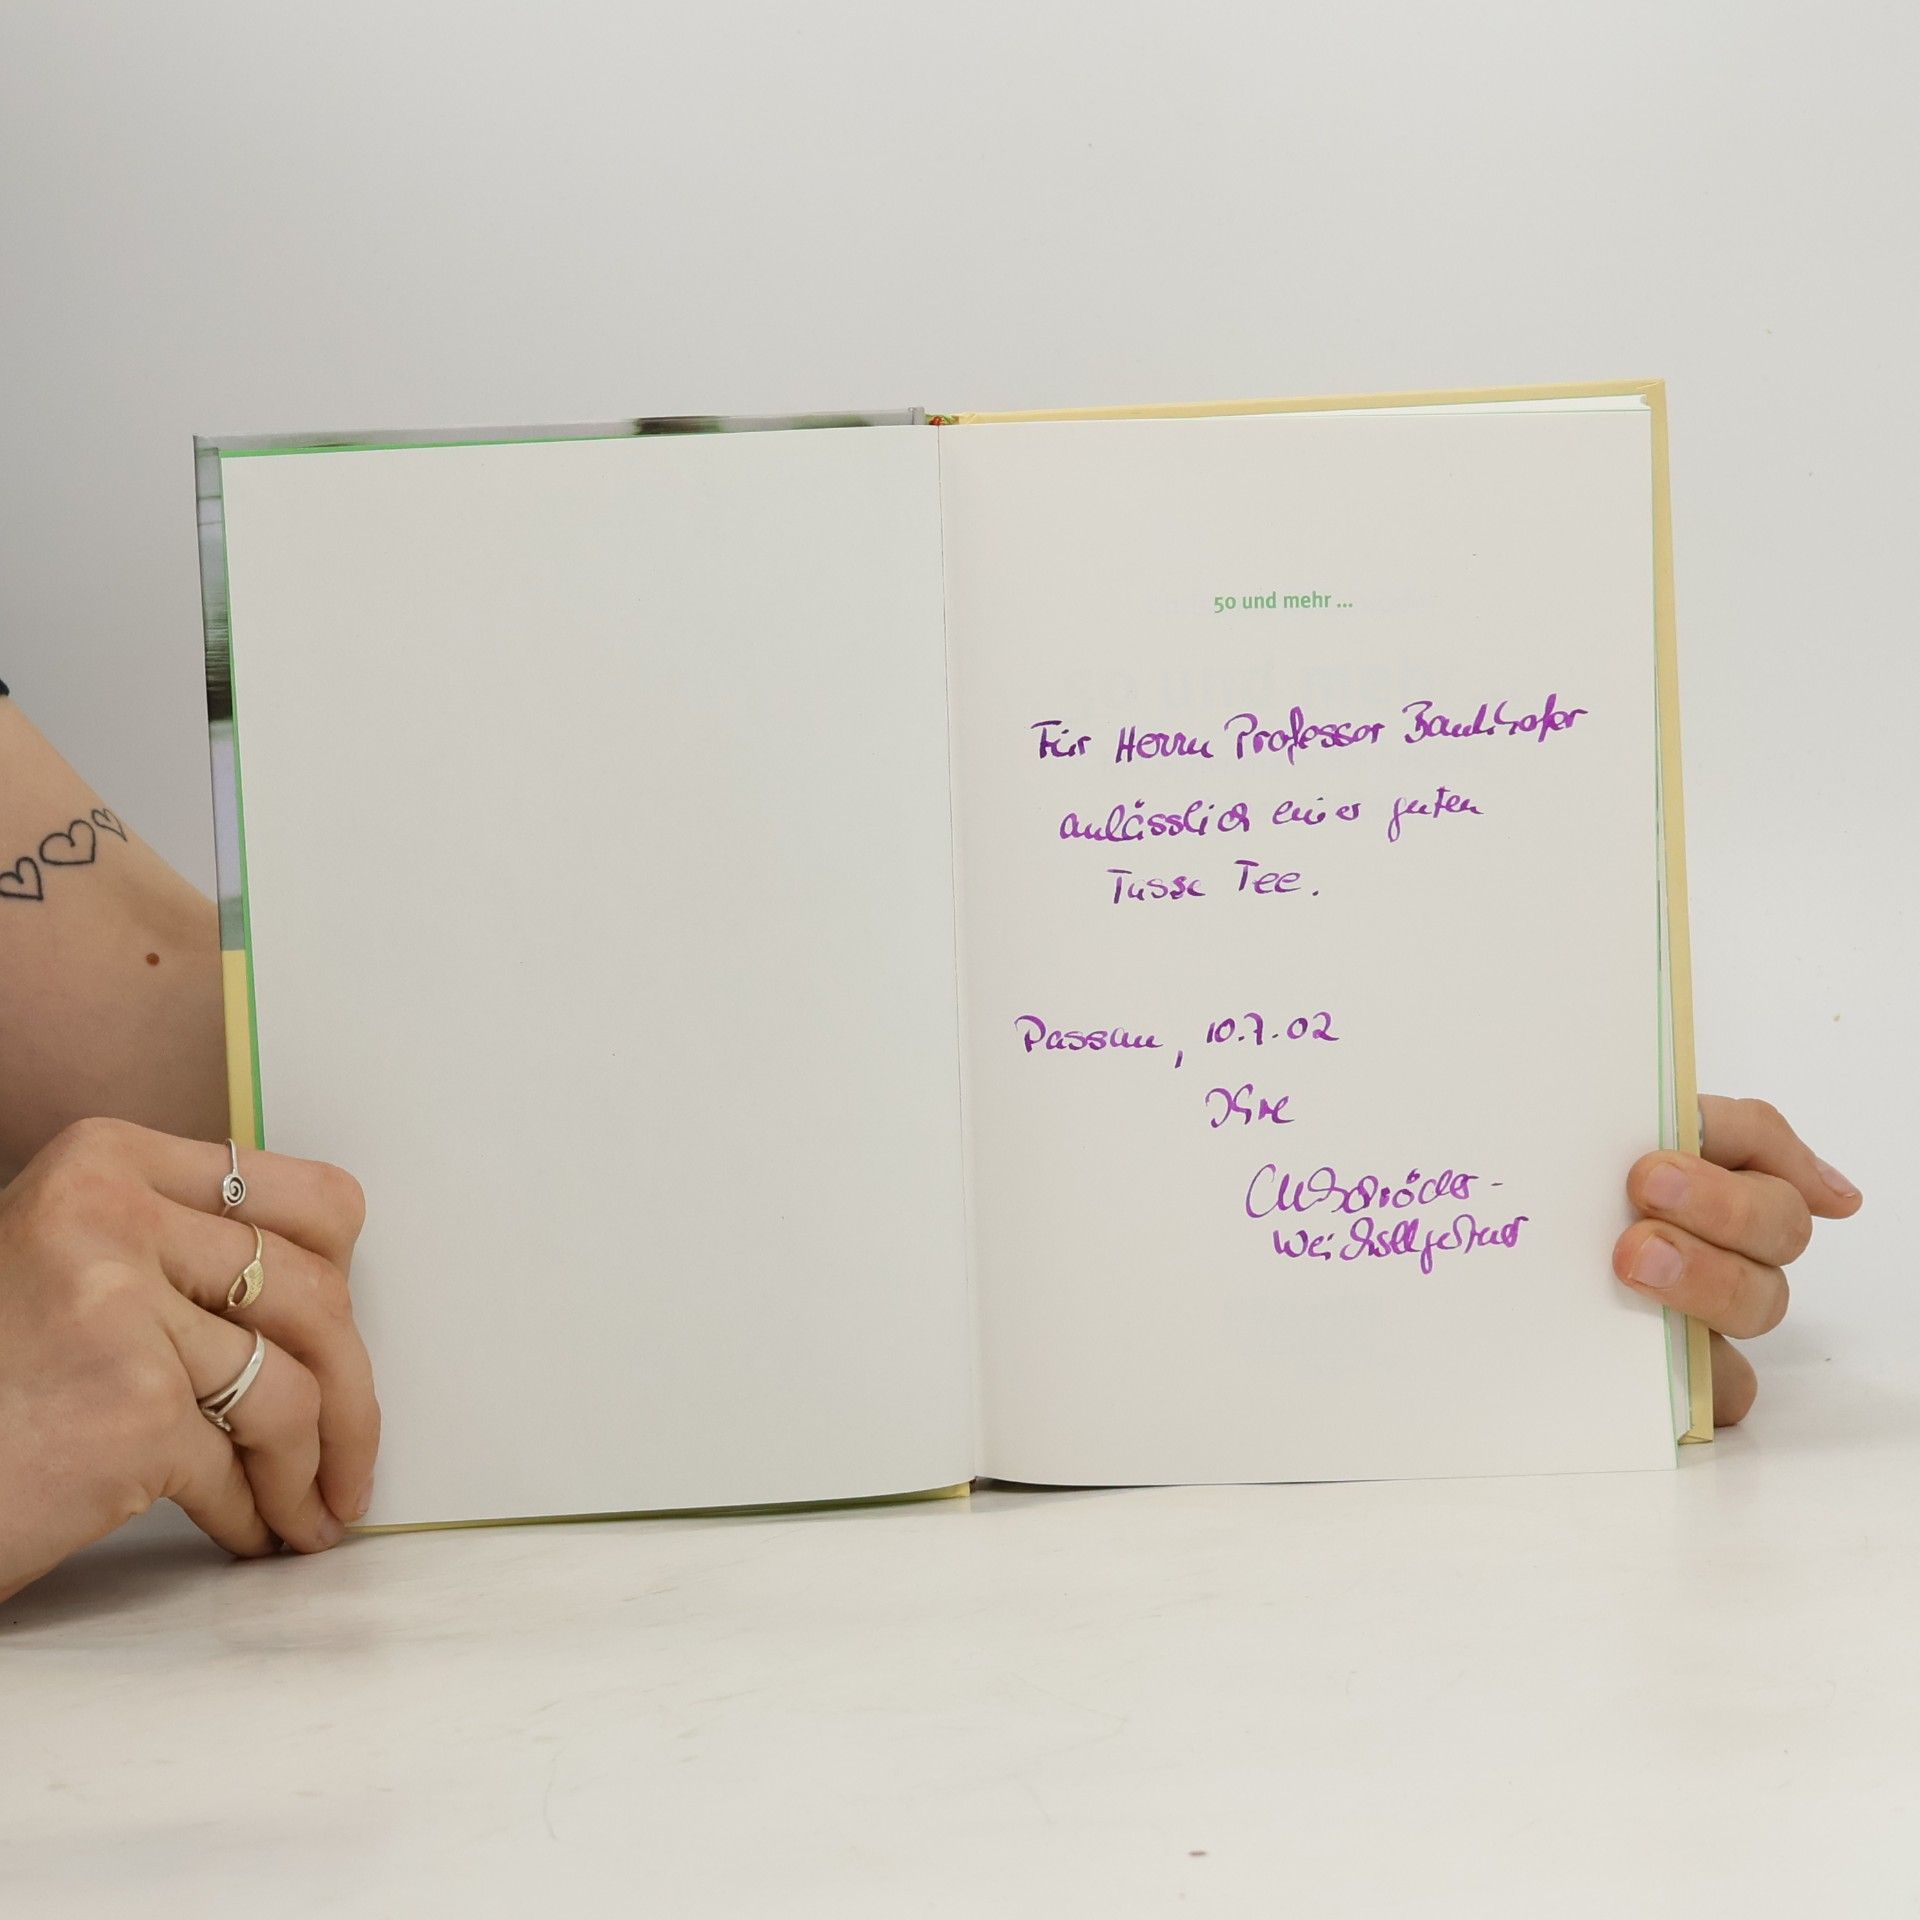 50 und mehr ...
Für Herrn Professor Bankhofer
anlässlich einer guten
Tasse Tee.
Passau, 10.7.02
Ihre
Schröder-